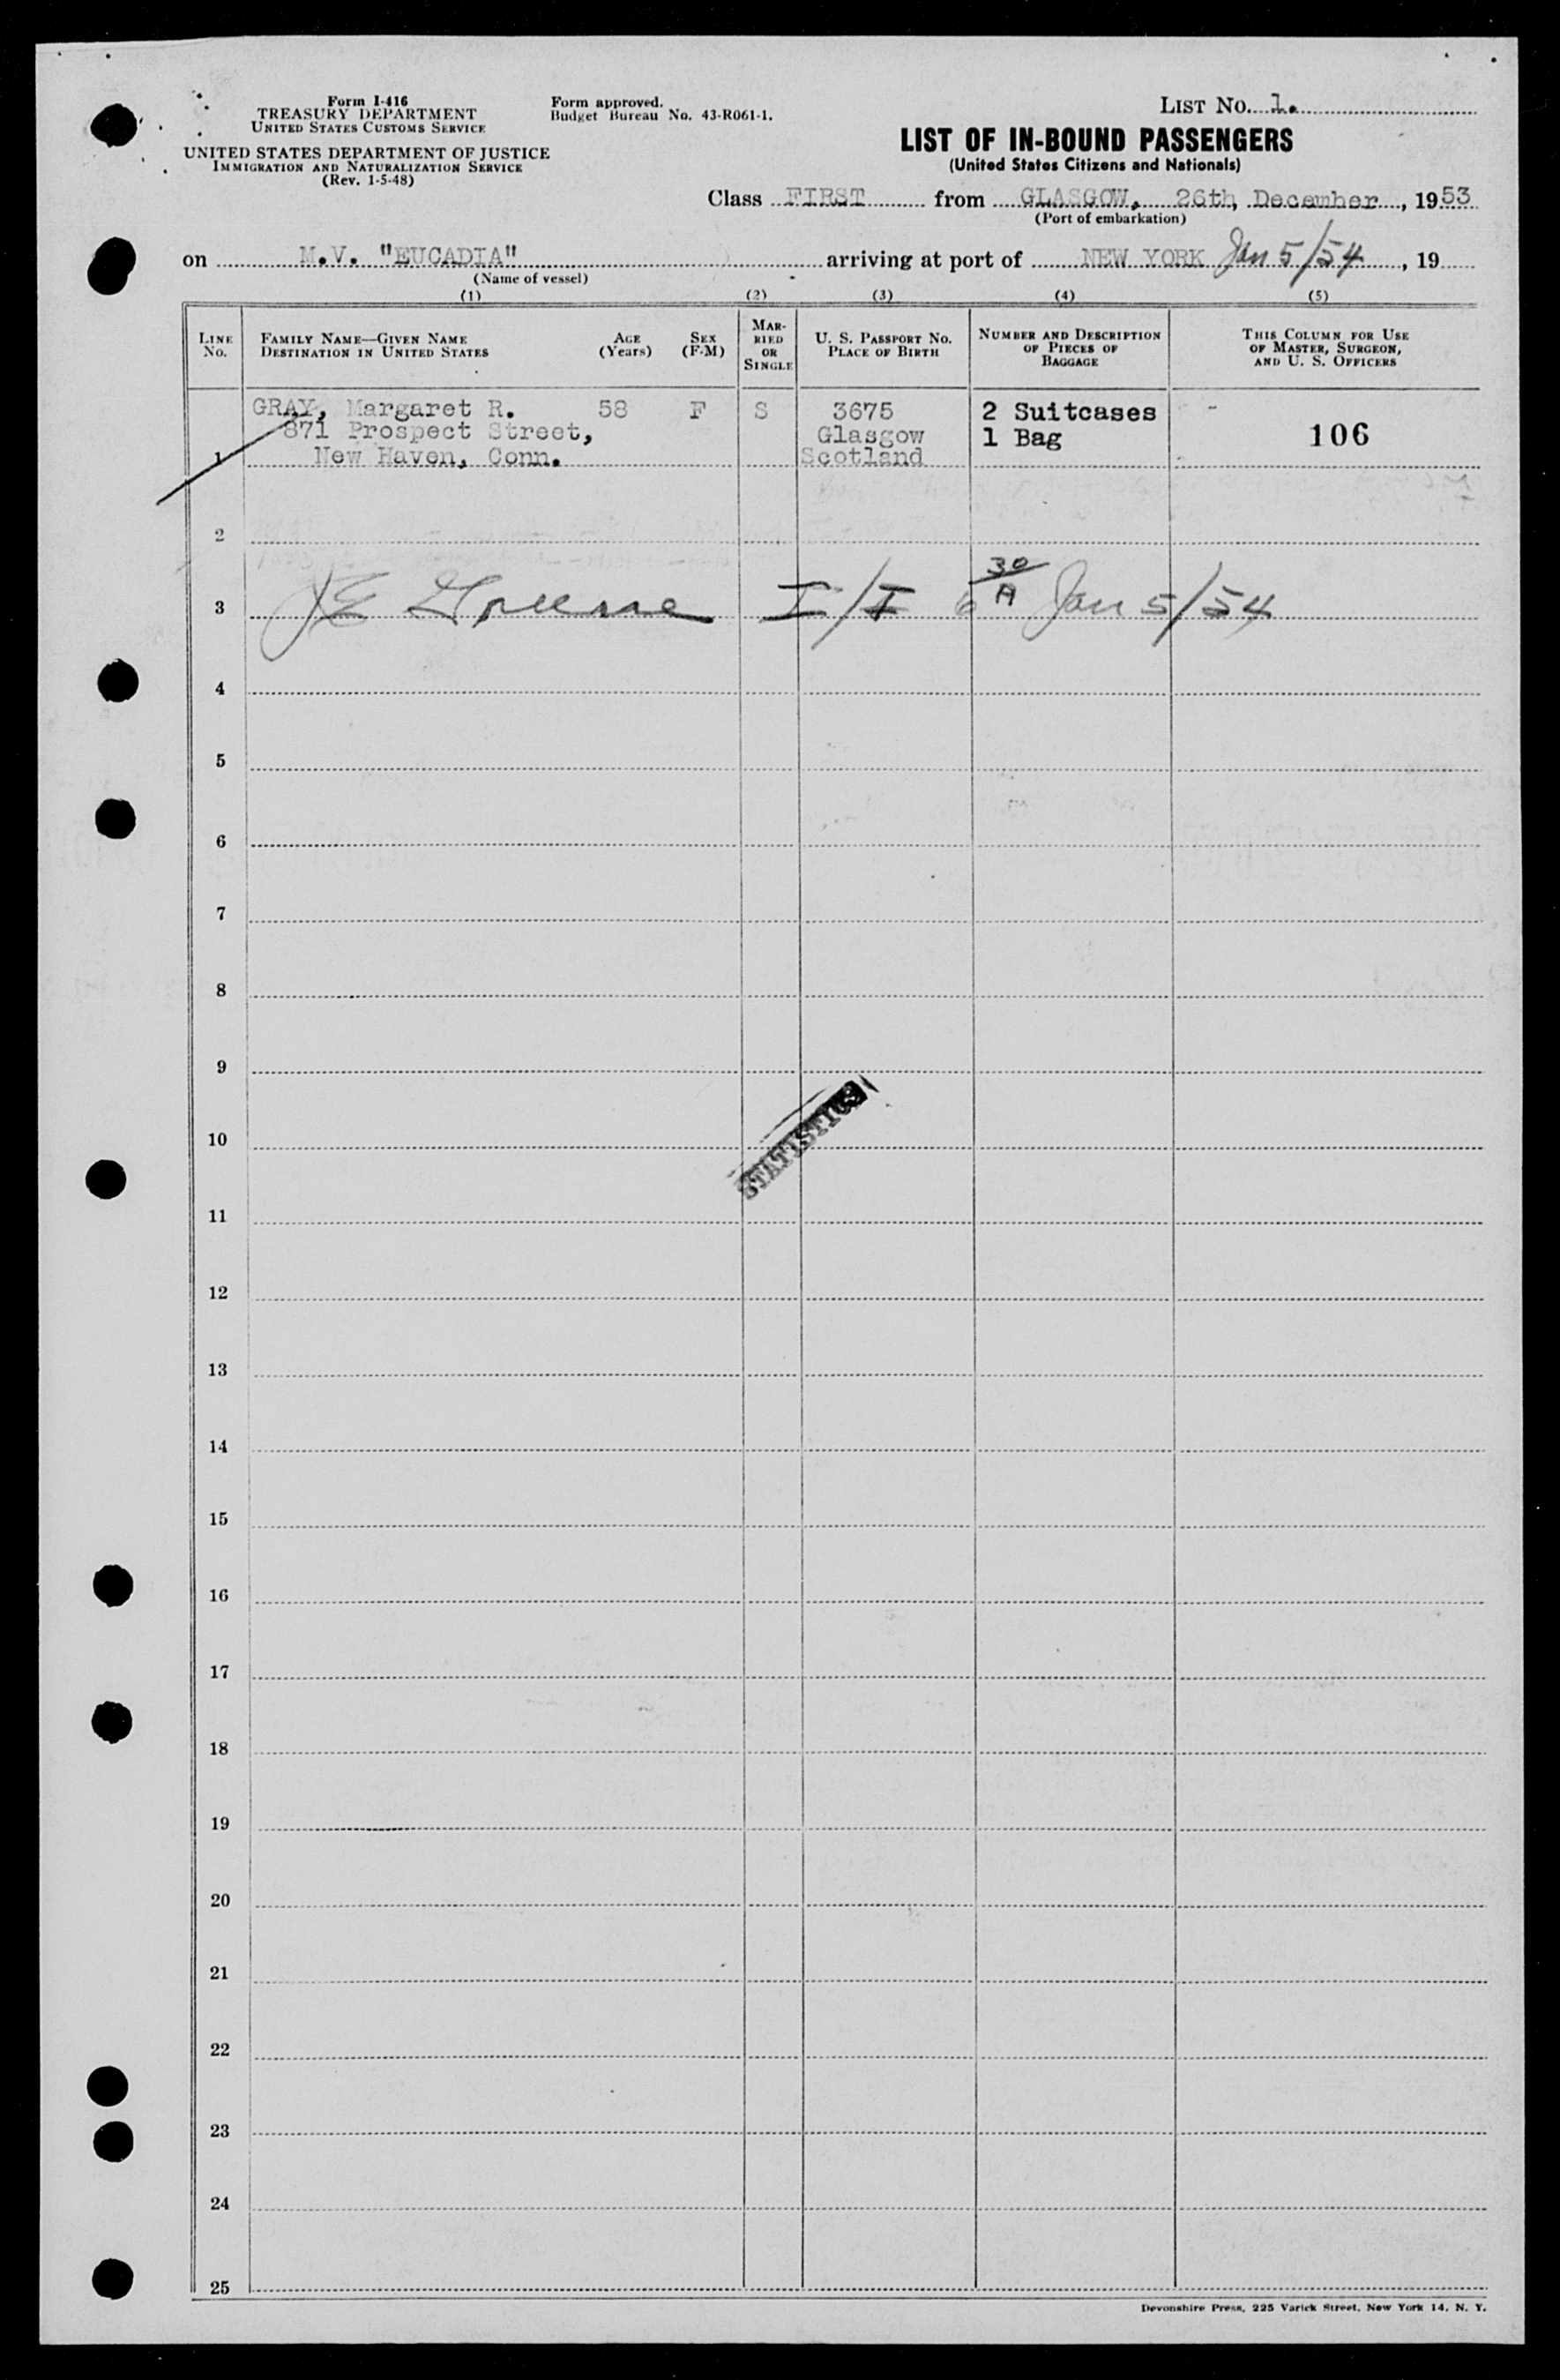 Form I-416
TREASURY DEPARTMENT
UNITED STATES CUSTOMS SERVICE
UNITED STATES DEPARTMENT OF JUSTICE
IMMIGRATION AND NATURALIZATION SERVICE
(Rev. 1-5-48)
Form approved.
Budget Bureau No. 43-R061-1.
LIST No. 1.
LIST OF IN-BOUND PASSENGERS
(United States Citizens and Nationals)
Class FIRST from GLASGOW, 26th, December, 1953
(Port of embarkation)
on M.V. "EUCADIA" arriving at port of NEW YORK Jan 5/54, 19
(Name of vessel)
(1) (2) (3) (4) (5)
LINE No.
FAMILY NAME—GIVEN NAME
DESTINATION IN UNITED STATES
AGE (Years)
SEX (F-M)
MARRIED OR SINGLE
U. S. PASSPORT NO.
PLACE OF BIRTH
NUMBER AND DESCRIPTION OF PIECES OF BAGGAGE
THIS COLUMN FOR USE OF MASTER, SURGEON, AND U. S. OFFICERS
GRAY, Margaret R. 58 F S 3675 2 Suitcases
871 Prospect Street, Glasgow 1 Bag 106
1 New Haven, Conn. Scotland
2
3 I/I 6 30/A Jan 5/54
4
5
6
7
8
9
STATISTICS
10
11
12
13
14
15
16
17
18
19
20
21
22
23
24
25
Devonshire Press, 225 Varick Street, New York 14, N. Y.